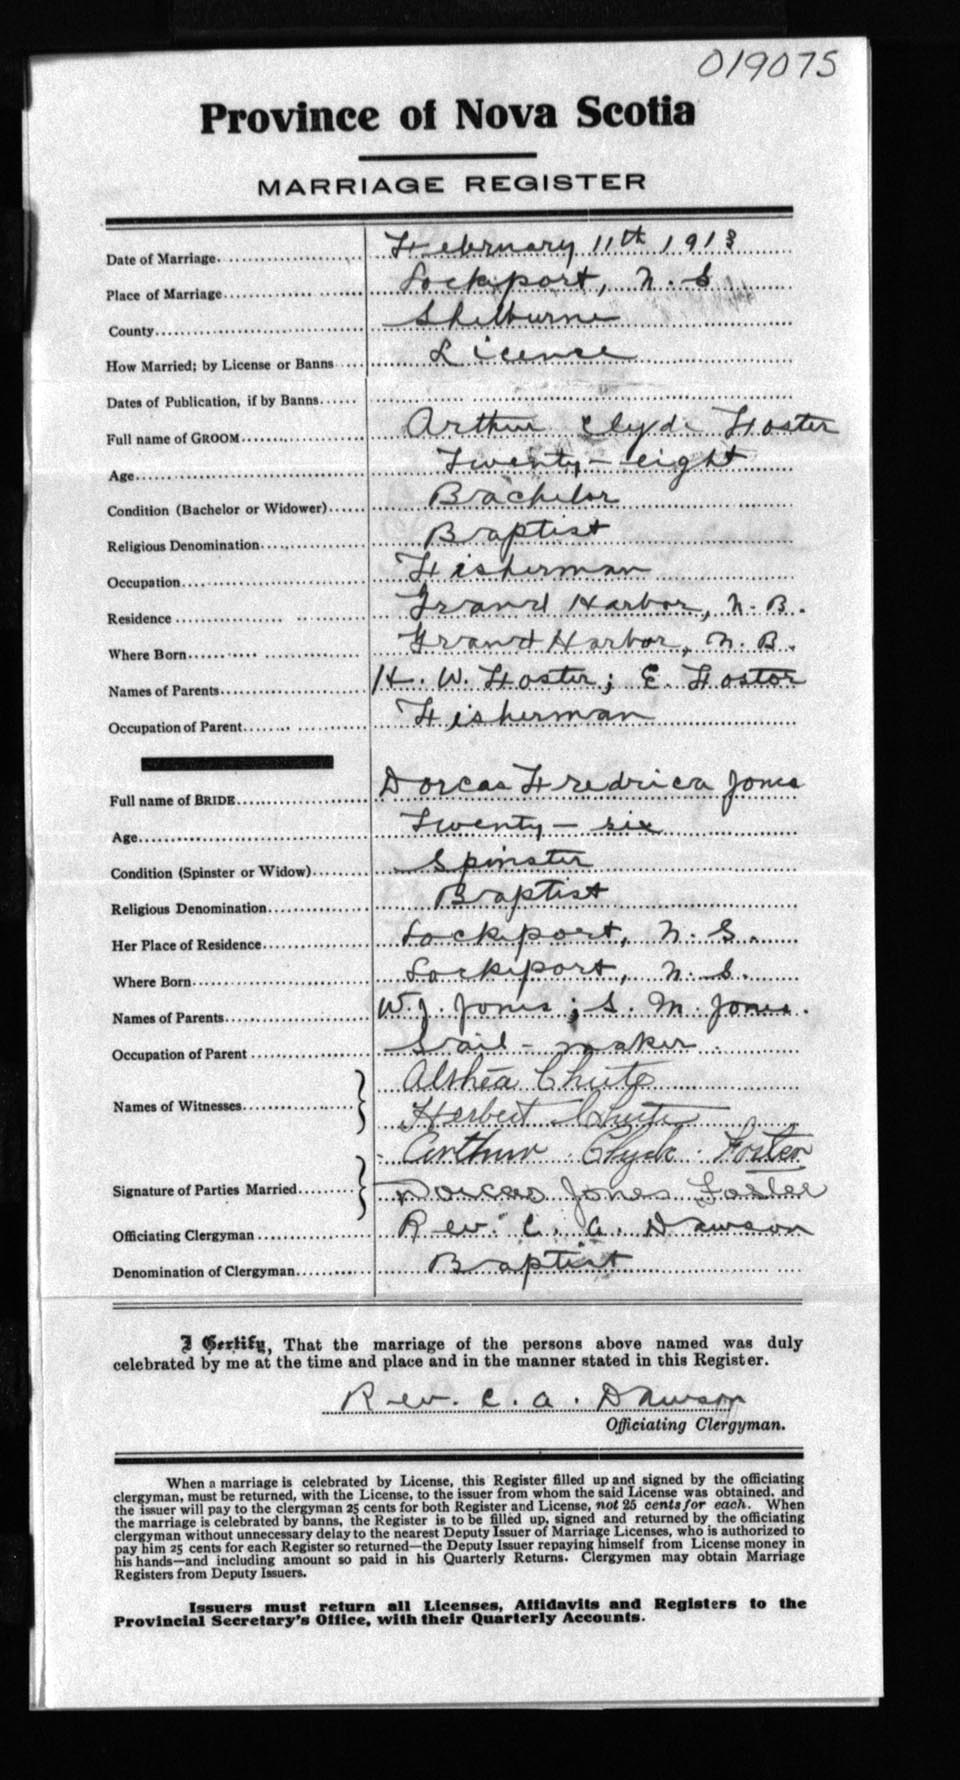 019075
Province of Nova Scotia
MARRIAGE REGISTER
Date of Marriage. February 11th 1913
Place of Marriage Lockeport, N. S
County Shelburne
How Married; by License or Banns License
Dates of Publication, if by Banns
Full name of GROOM Arthur Clyde Foster
Age Twenty-eight
Condition (Bachelor or Widower) Bachelor
Religious Denomination Baptist
Occupation Fisherman
Residence Grand Harbor, N. B.
Where Born Grand Harbor, N. B.
Names of Parents H. W. Foster; E. Foster
Occupation of Parent Fisherman
Full name of BRIDE Dorcas Fredrica Jones
Age Twenty-six
Condition (Spinster or Widow) Spinster
Religious Denomination Baptist
Her Place of Residence Lockeport, N. S.
Where Born Lockeport, N. S.
Names of Parents W. J. Jones; S. M. Jones.
Occupation of Parent Sail-maker
Names of Witnesses Althea Chute
Herbert Chute
Signature of Parties Married Arthur Clyde Foster
Dorcas Jones Foster
Officiating Clergyman Rev. C. A. Dawson
Denomination of Clergyman Baptist
I Certify, That the marriage of the persons above named was duly
celebrated by me at the time and place and in the manner stated in this Register.
Rev. C. A. Dawson
Officiating Clergyman.
When a marriage is celebrated by License, this Register filled up and signed by the officiating
clergyman, must be returned, with the License, to the issuer from whom the said License was obtained, and
the issuer will pay to the clergyman 25 cents for both Register and License, not 25 cents for each. When
the marriage is celebrated by banns, the Register is to be filled up, signed and returned by the officiating
clergyman without unnecessary delay to the nearest Deputy Issuer of Marriage Licenses, who is authorized to
pay him 25 cents for each Register so returned—the Deputy Issuer repaying himself from License money in
his hands—and including amount so paid in his Quarterly Returns. Clergymen may obtain Marriage
Registers from Deputy Issuers.
Issuers must return all Licenses, Affidavits and Registers to the
Provincial Secretary's Office, with their Quarterly Accounts.